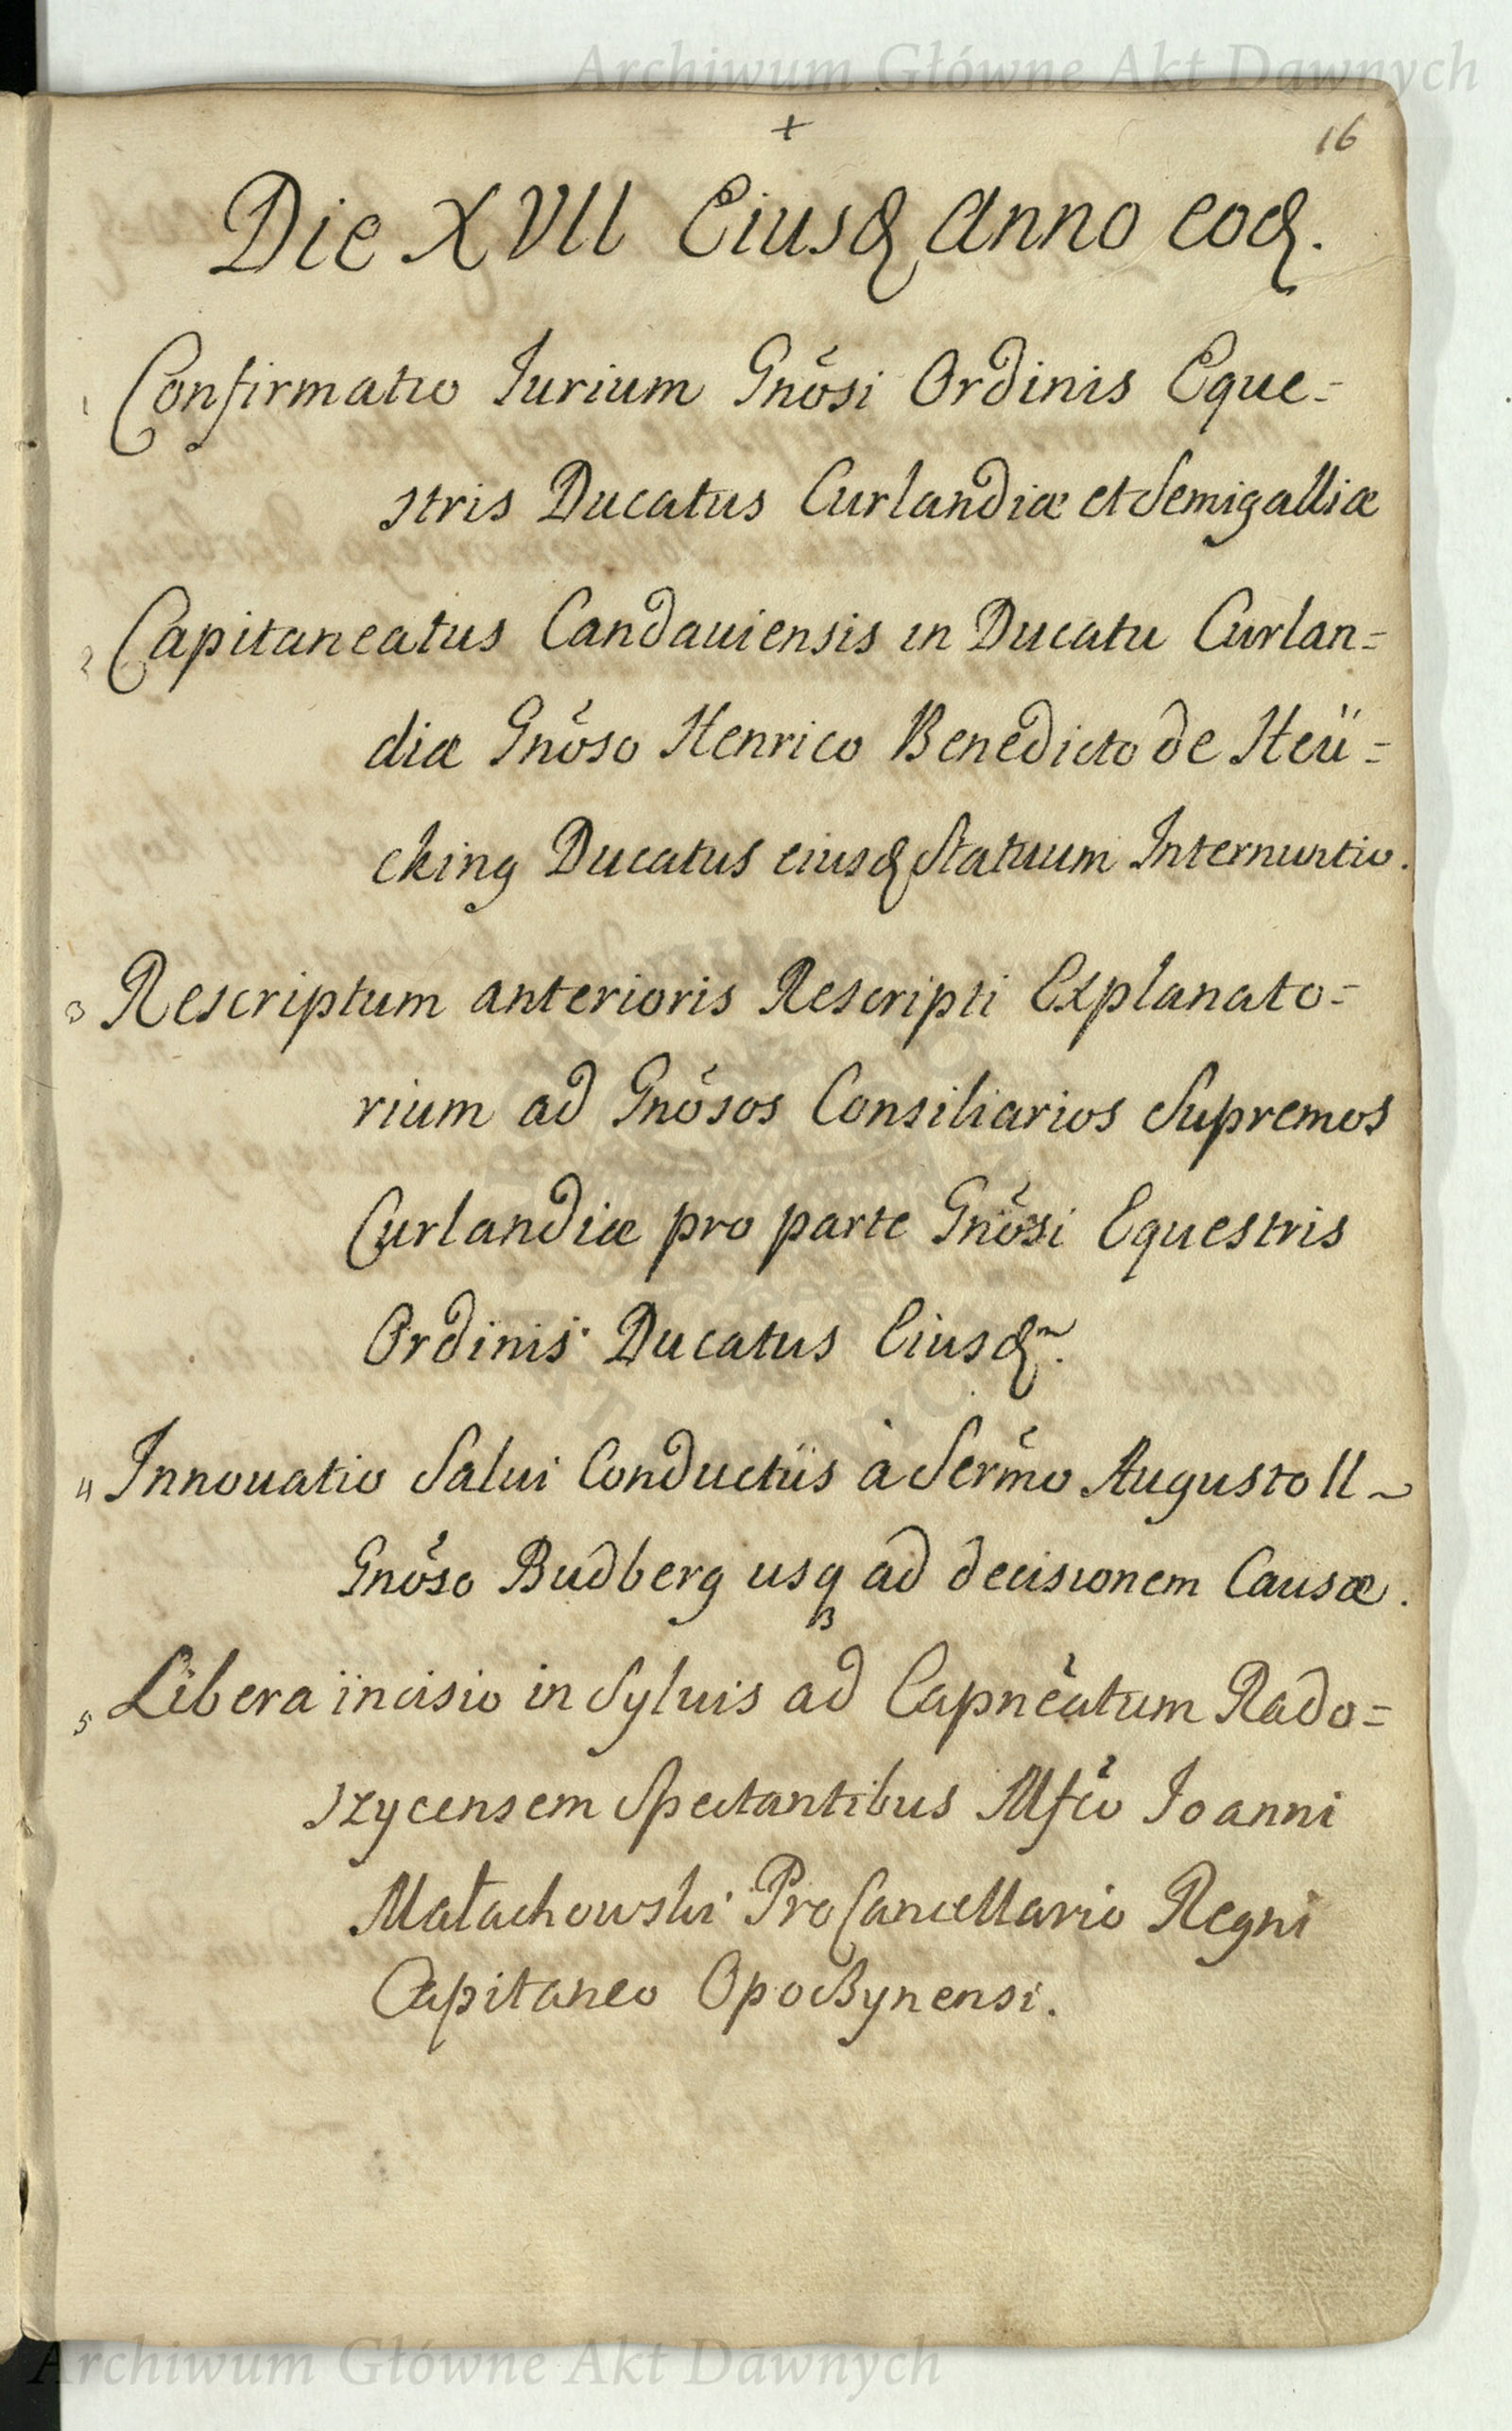 Archiwum Główne Akt Dawnych
+
16
Die XVII Eiusd Anno eod.
1 Confirmatio Iurium Gnõsi Ordinis Eque=
stris Ducatus Curlandiæ et Semigalliæ
2 Capitaneatus Candauiensis in Ducatu Curlan=
diæ Gnõso Henrico Benedicto de Heü=
cking Ducatus eiusd Statuum Internuntio.
3 Rescriptum anterioris Rescripti Explanato=
rium ad Gnõsos Consiliarios Supremos
Curlandiæ pro parte Gnõsi Equestris
Ordinis Ducatus Eiusdm.
4 Innouatio Salui Conductûs à Serm̃o Augusto II ~
Gnõso Budberg usq ad decisionem Causæ.
5 Libera incisio in Syluis ad Capnẽatum Rado=
szycensem Spectantibus Mfcõ Ioanni
Małachowski ProCancellario Regni
Capitaneo Opoczynensi.
Archiwum Główne Akt Dawnych